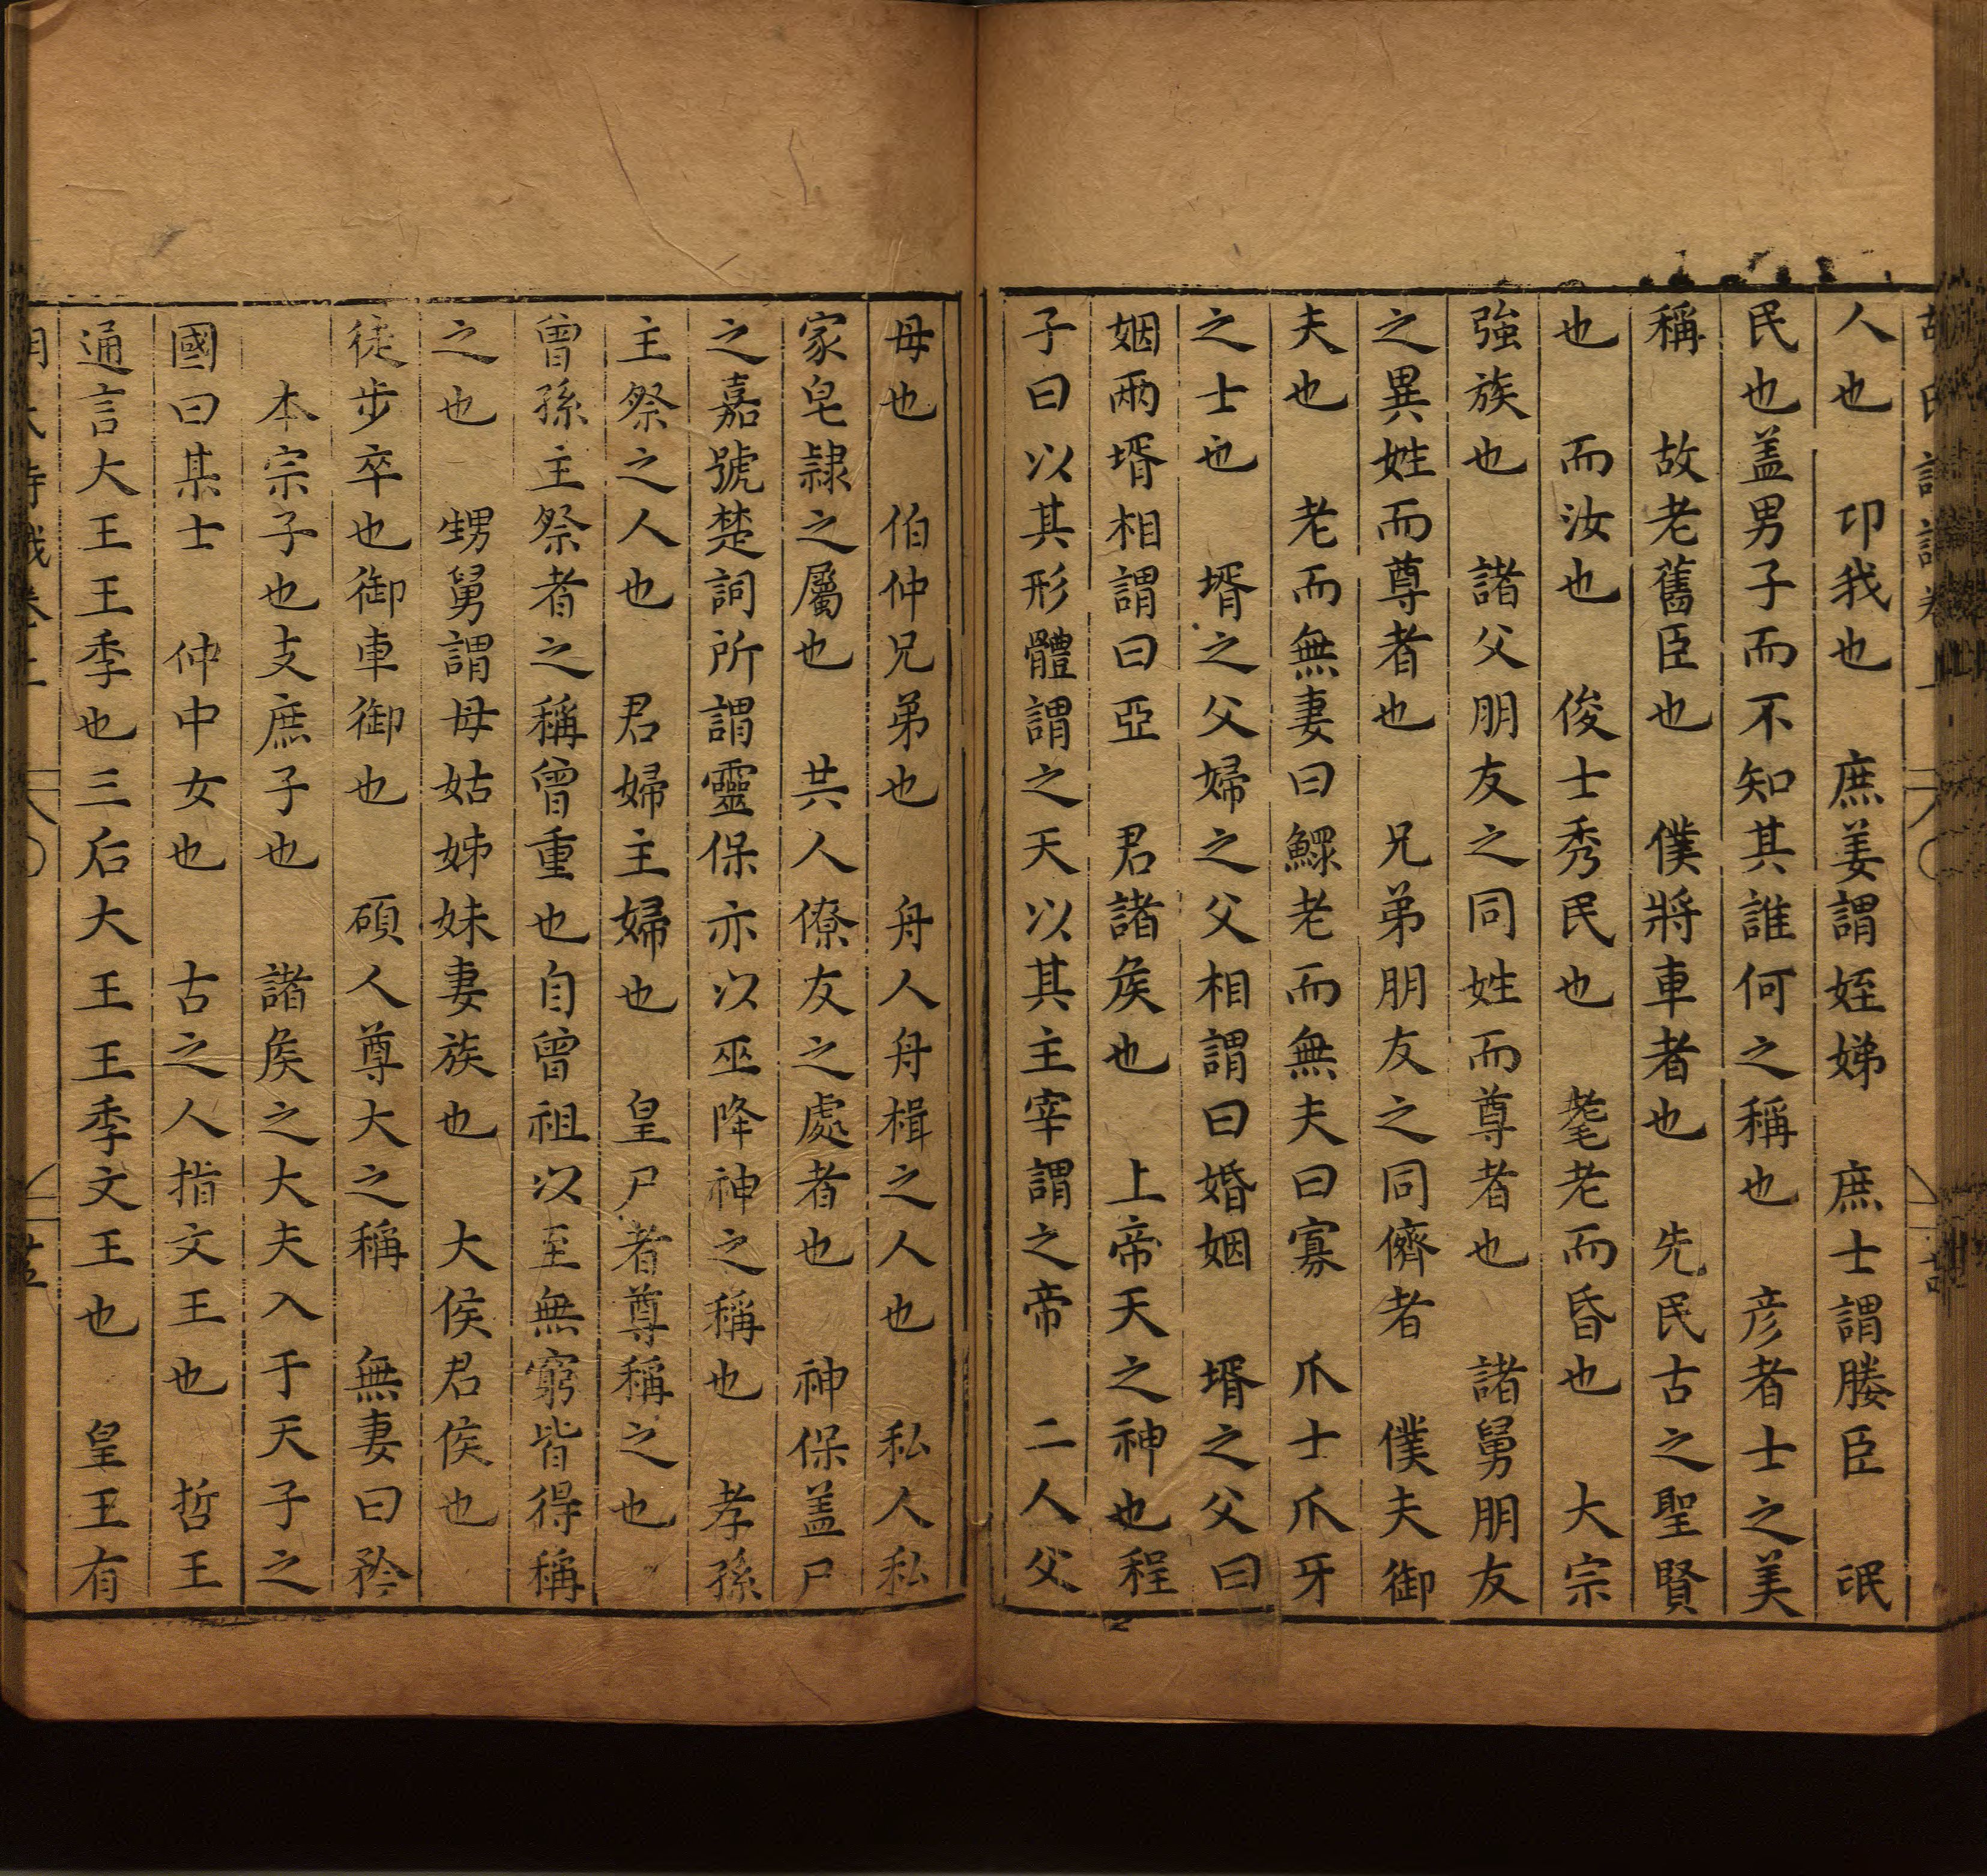 人也　卬我也　庶姜謂姪娣　庶士謂媵臣　氓
民也盖男子而不知其誰何之稱也　彦者士之美
稱　故老舊臣也　僕將車者也　先民古之聖賢
也　而汝也　俊士秀民也　耄老而昏也　大宗
強族也　諸父朋友之同姓而尊者也　諸舅朋友
之異姓而尊者也　兄弟朋友之同儕者　僕夫御
夫也　老而無妻曰鰥老而無夫曰寡　爪士爪牙
之士也　壻之父婦之父相謂曰婚姻　壻之父曰
姻兩壻相謂曰亞　君諸矦也　上帝天之神也程
子曰以其形體謂之天以其主宰謂之帝　二人父
母也　伯仲兄弟也　舟人舟楫之人也　私人私
家皂隷之屬也　共人僚友之處者也　神保盖尸
之嘉號楚詞所謂靈保亦以巫降神之稱也　孝孫
主祭之人也　君婦主婦也　皇尸者尊稱之也
曾孫主祭者之稱曾重也自曾祖以至無窮皆得稱
之也　甥舅謂母姑姊妹妻族也　大侯君侯也
徒步卒也御車御也　碩人尊大之稱　無妻曰矜
本宗子也支庶子也　諸矦之大夫入于天子之
國曰某士　仲中女也　古之人指文王也　哲王
通言大王王季也三后大王王季文王也　皇王有